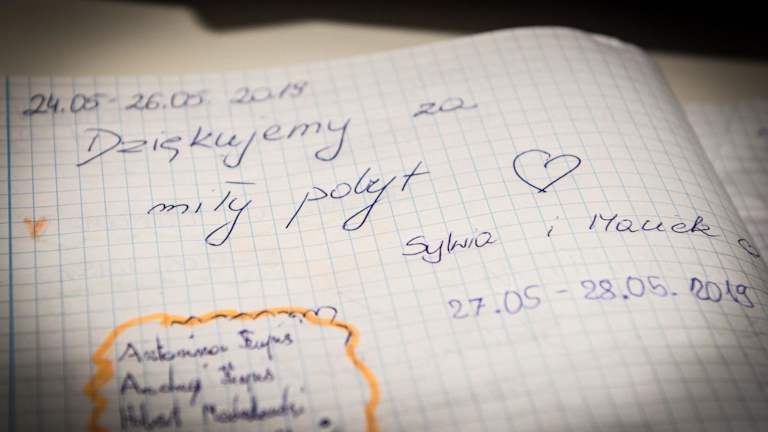 24.05 - 26.05. 2019
Dziękujemy za
miły pobyt
Sylwia i Maciek
27.05 - 28.05. 2019
Antonina
Andrzej
Hubert